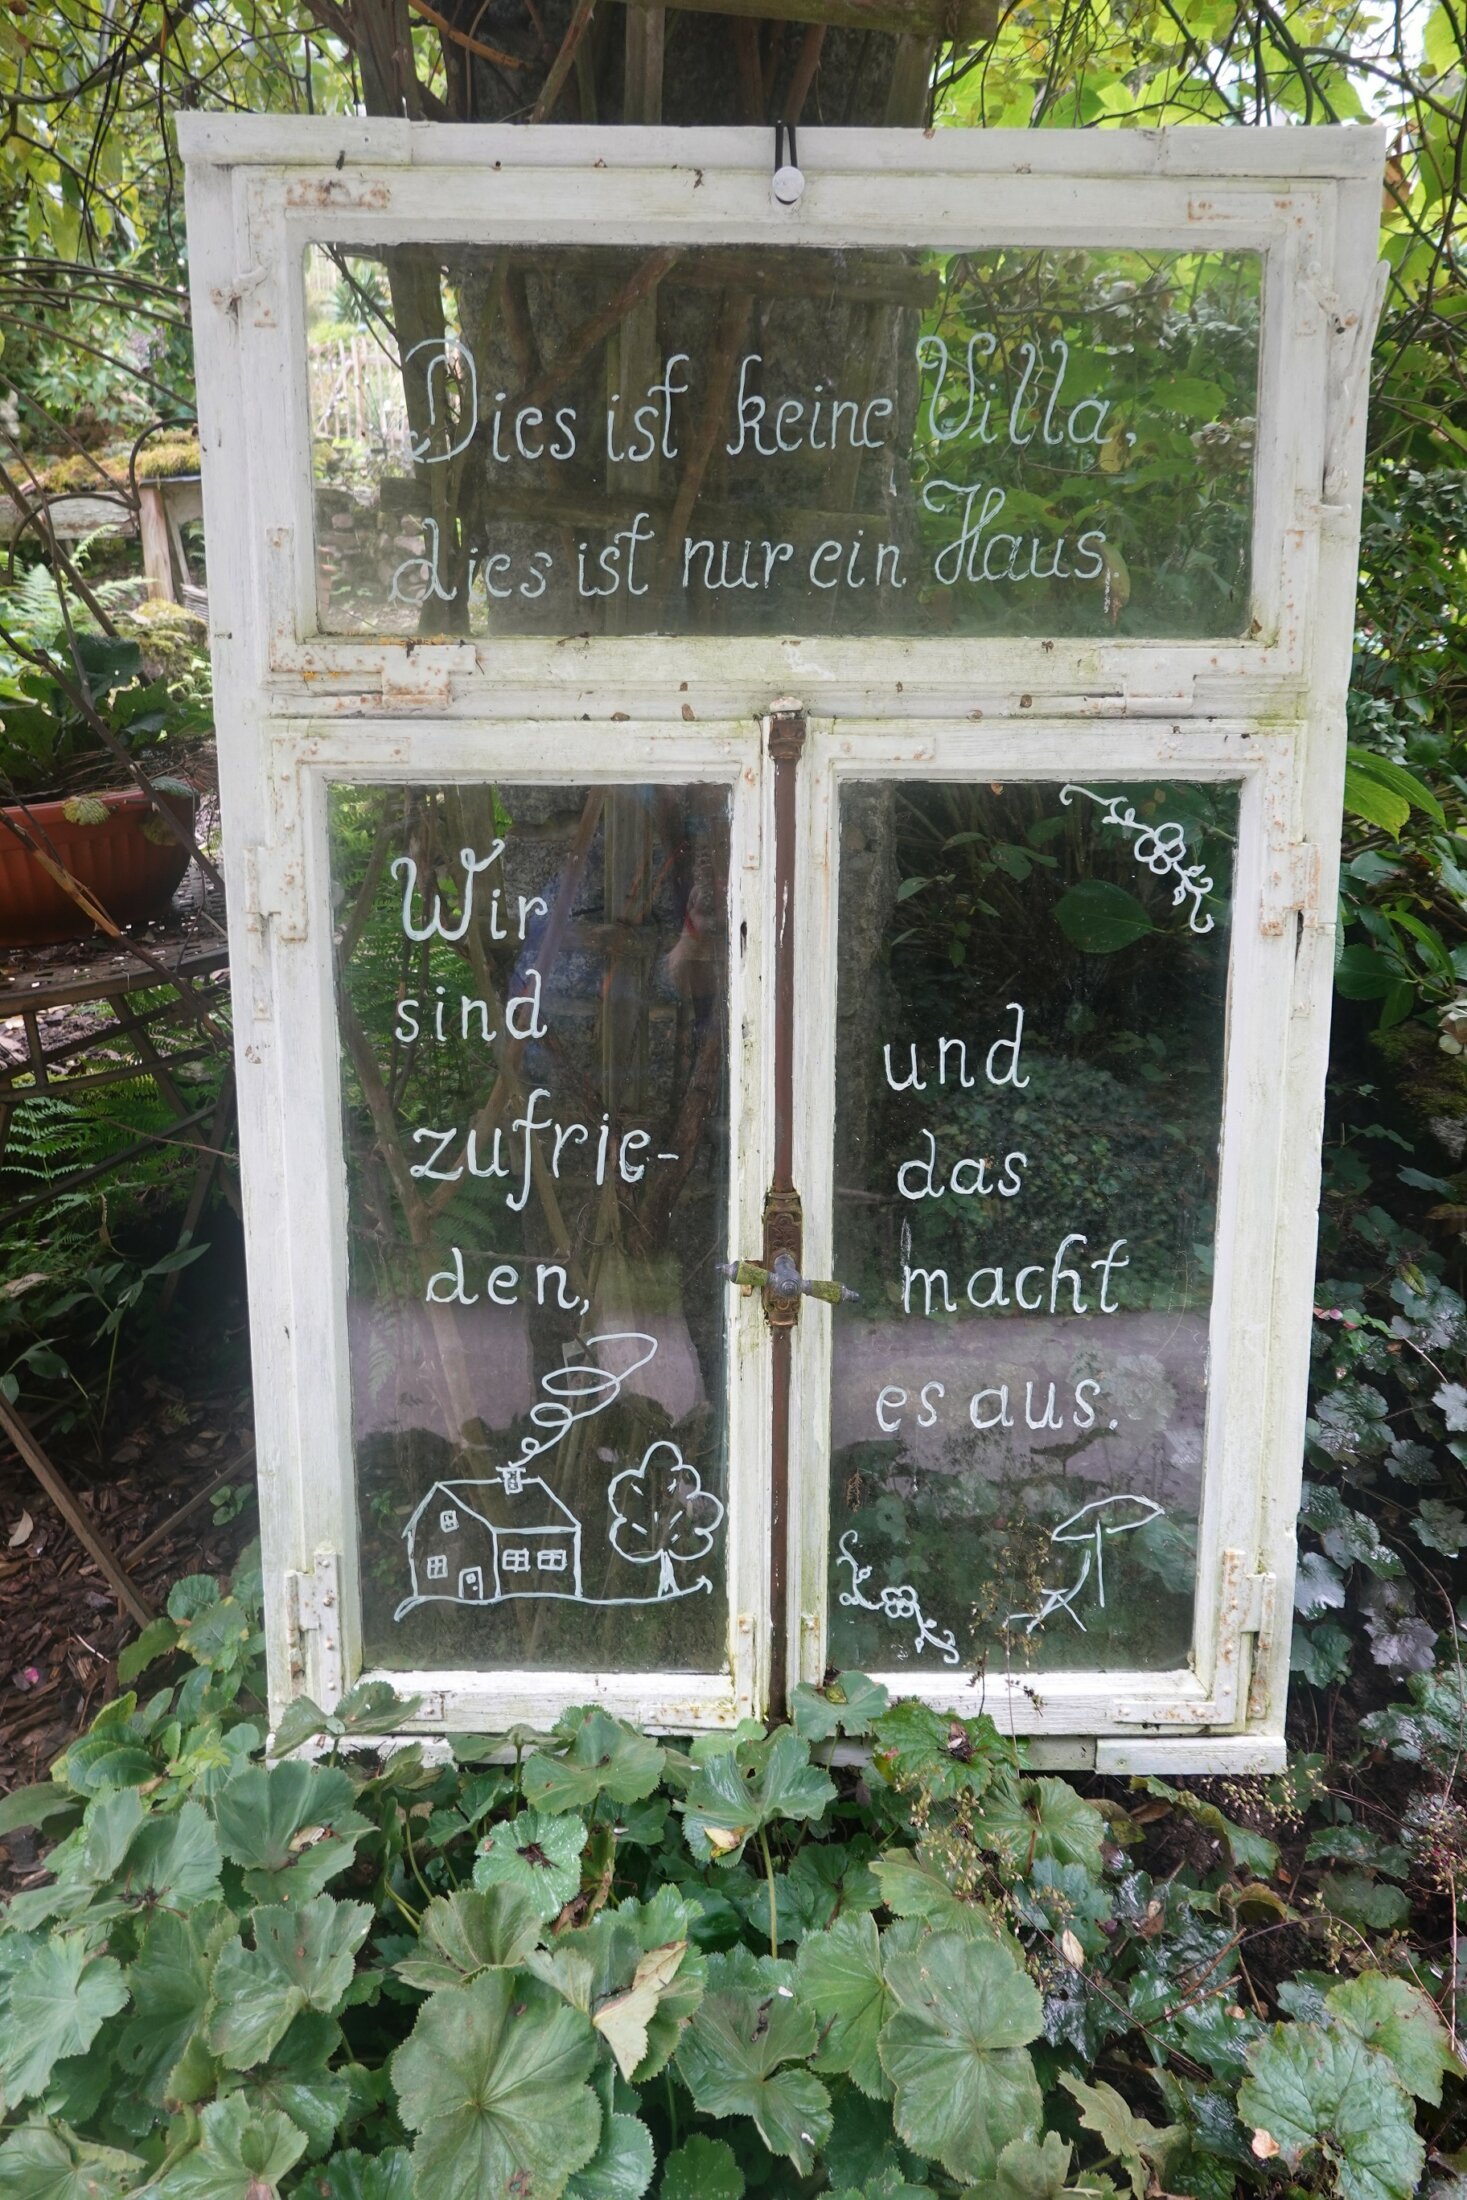 Dies ist keine Villa,
dies ist nur ein Haus
Wir
sind
zufrie-
den,
und
das
macht
es aus.